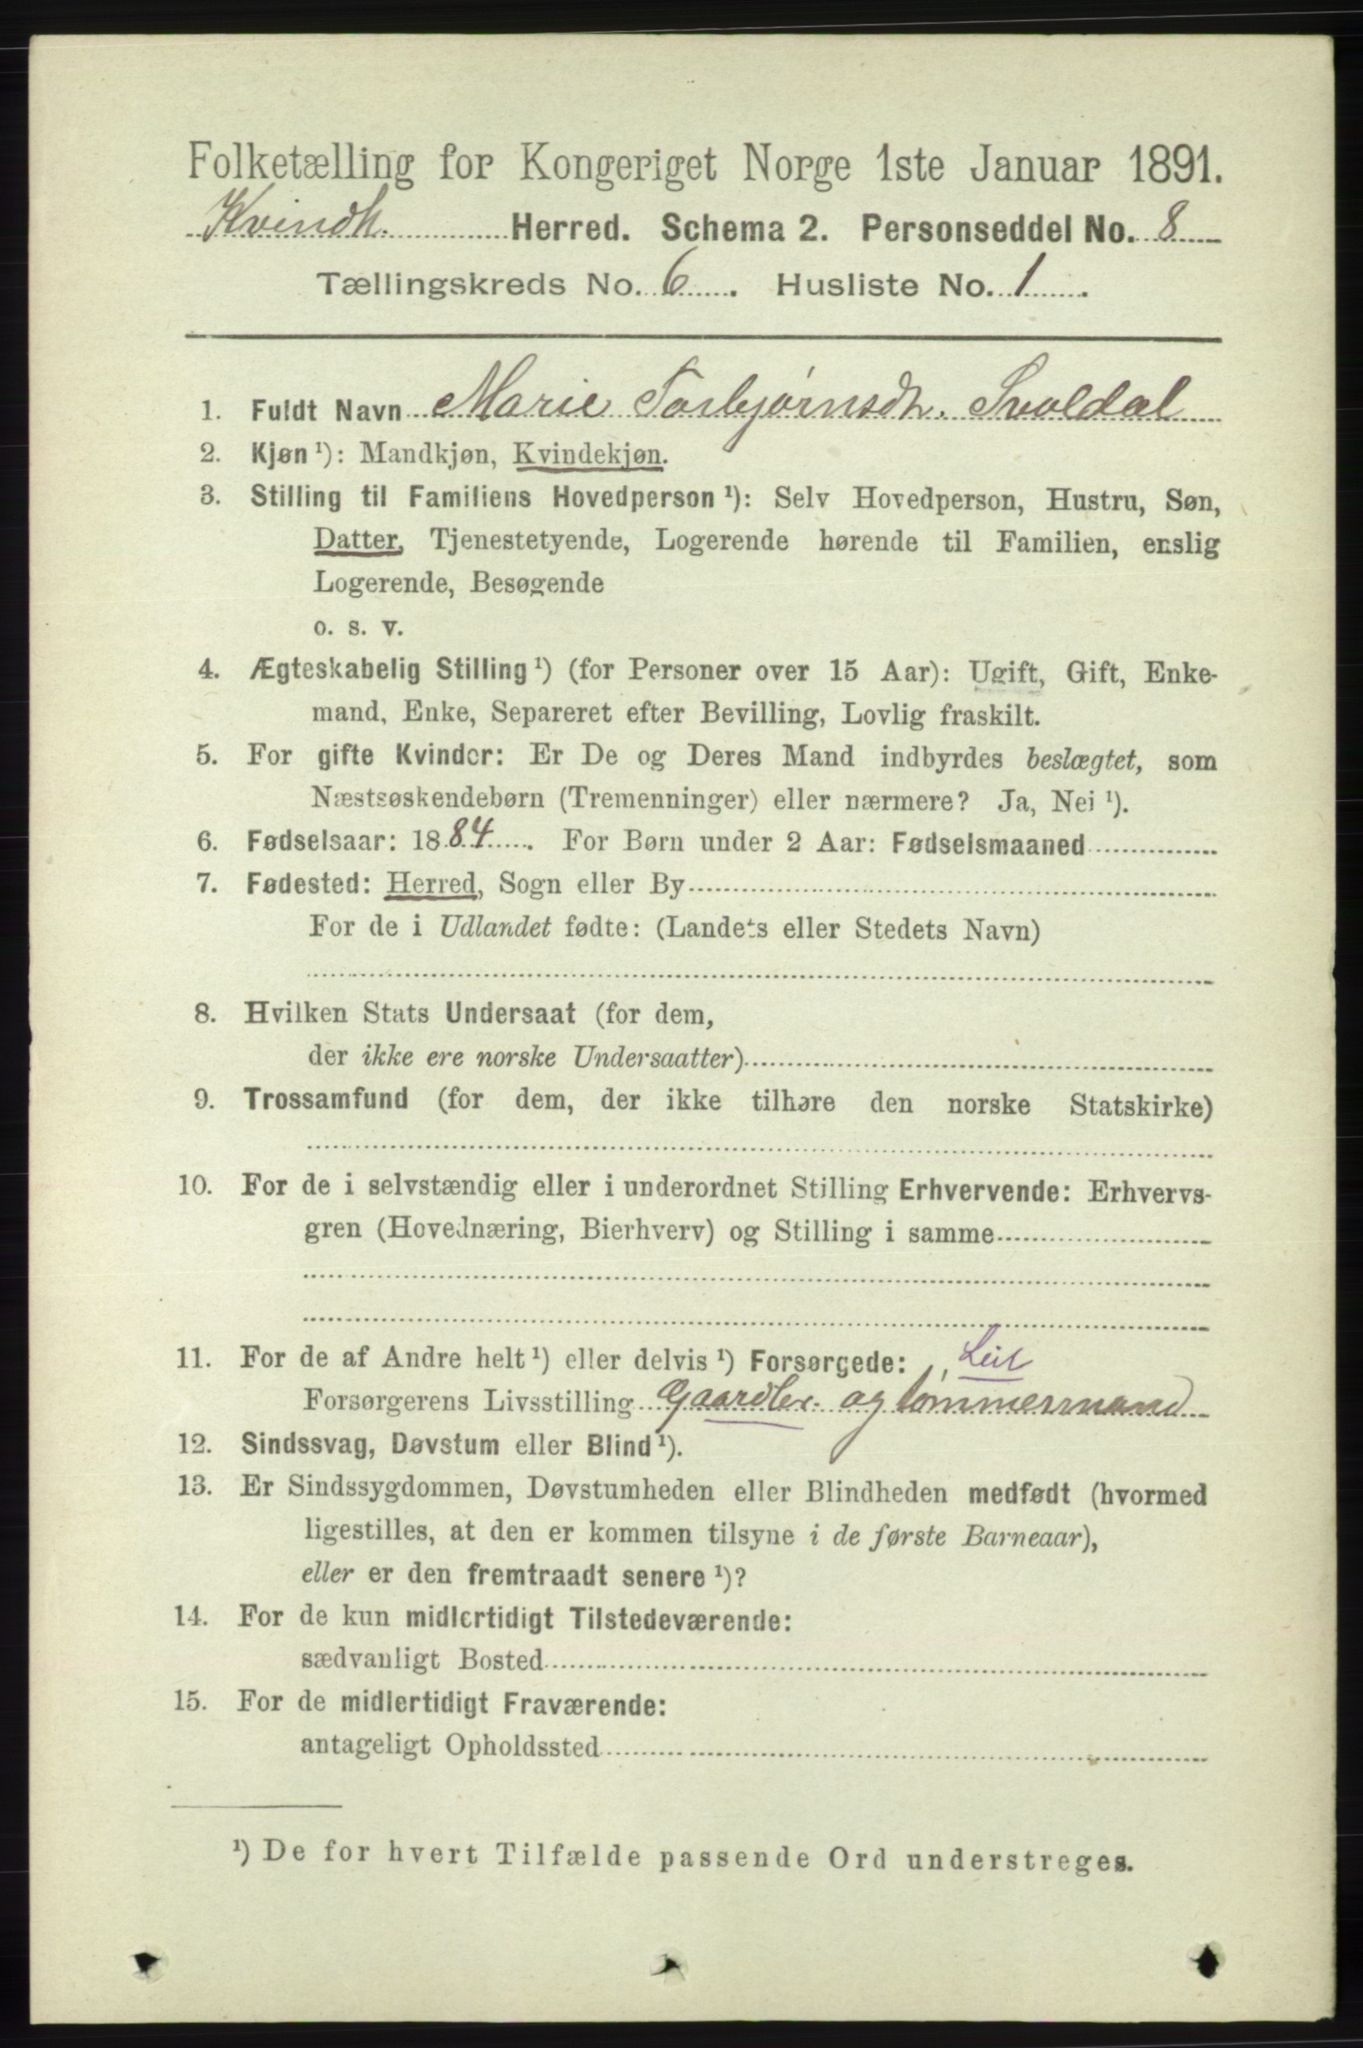 Folketælling for Kongeriget Norge 1ste Januar 1891.
Kvindh. Herred. Schema 2. Personseddel No. 8
Tællingskreds No. 6. Husliste No. 1.
1. Fuldt Navn Marie Torbjørnsdtr. Svoldal
2. Kjøn ¹): Mandkjøn, Kvindekjøn.
3. Stilling til Familiens Hovedperson ¹): Selv Hovedperson, Hustru, Søn,
Datter, Tjenestetyende, Logerende hørende til Familien, enslig
Logerende, Besøgende
o. s. v.
4. Ægteskabelig Stilling ¹) (for Personer over 15 Aar): Ugift, Gift, Enke-
mand, Enke, Separeret efter Bevilling, Lovlig fraskilt.
5. For gifte Kvinder: Er De og Deres Mand indbyrdes beslægtet, som
Næstsøskendebørn (Tremenninger) eller nærmere? Ja, Nei ¹).
6. Fødselsaar: 1884. For Børn under 2 Aar: Fødselsmaaned
7. Fødested: Herred, Sogn eller By
For de i Udlandet fødte: (Landets eller Stedets Navn)
8. Hvilken Stats Undersaat (for dem,
der ikke ere norske Undersaatter)
9. Trossamfund (for dem, der ikke tilhøre den norske Statskirke)
10. For de i selvstændig eller i underordnet Stilling Erhvervende: Erhvervs-
gren (Hovednæring, Bierhverv) og Stilling i samme
11. For de af Andre helt ¹) eller delvis ¹) Forsørgede:
Forsørgerens Livsstilling Gaardbr. og tømmermand
12. Sindssvag, Døvstum eller Blind ¹).
13. Er Sindssygdommen, Døvstumheden eller Blindheden medfødt (hvormed
ligestilles, at den er kommen tilsyne i de første Barneaar),
eller er den fremtraadt senere ¹)?
14. For de kun midlertidigt Tilstedeværende:
sædvanligt Bosted
15. For de midlertidigt Fraværende:
antageligt Opholdssted
¹) De for hvert Tilfælde passende Ord understreges.